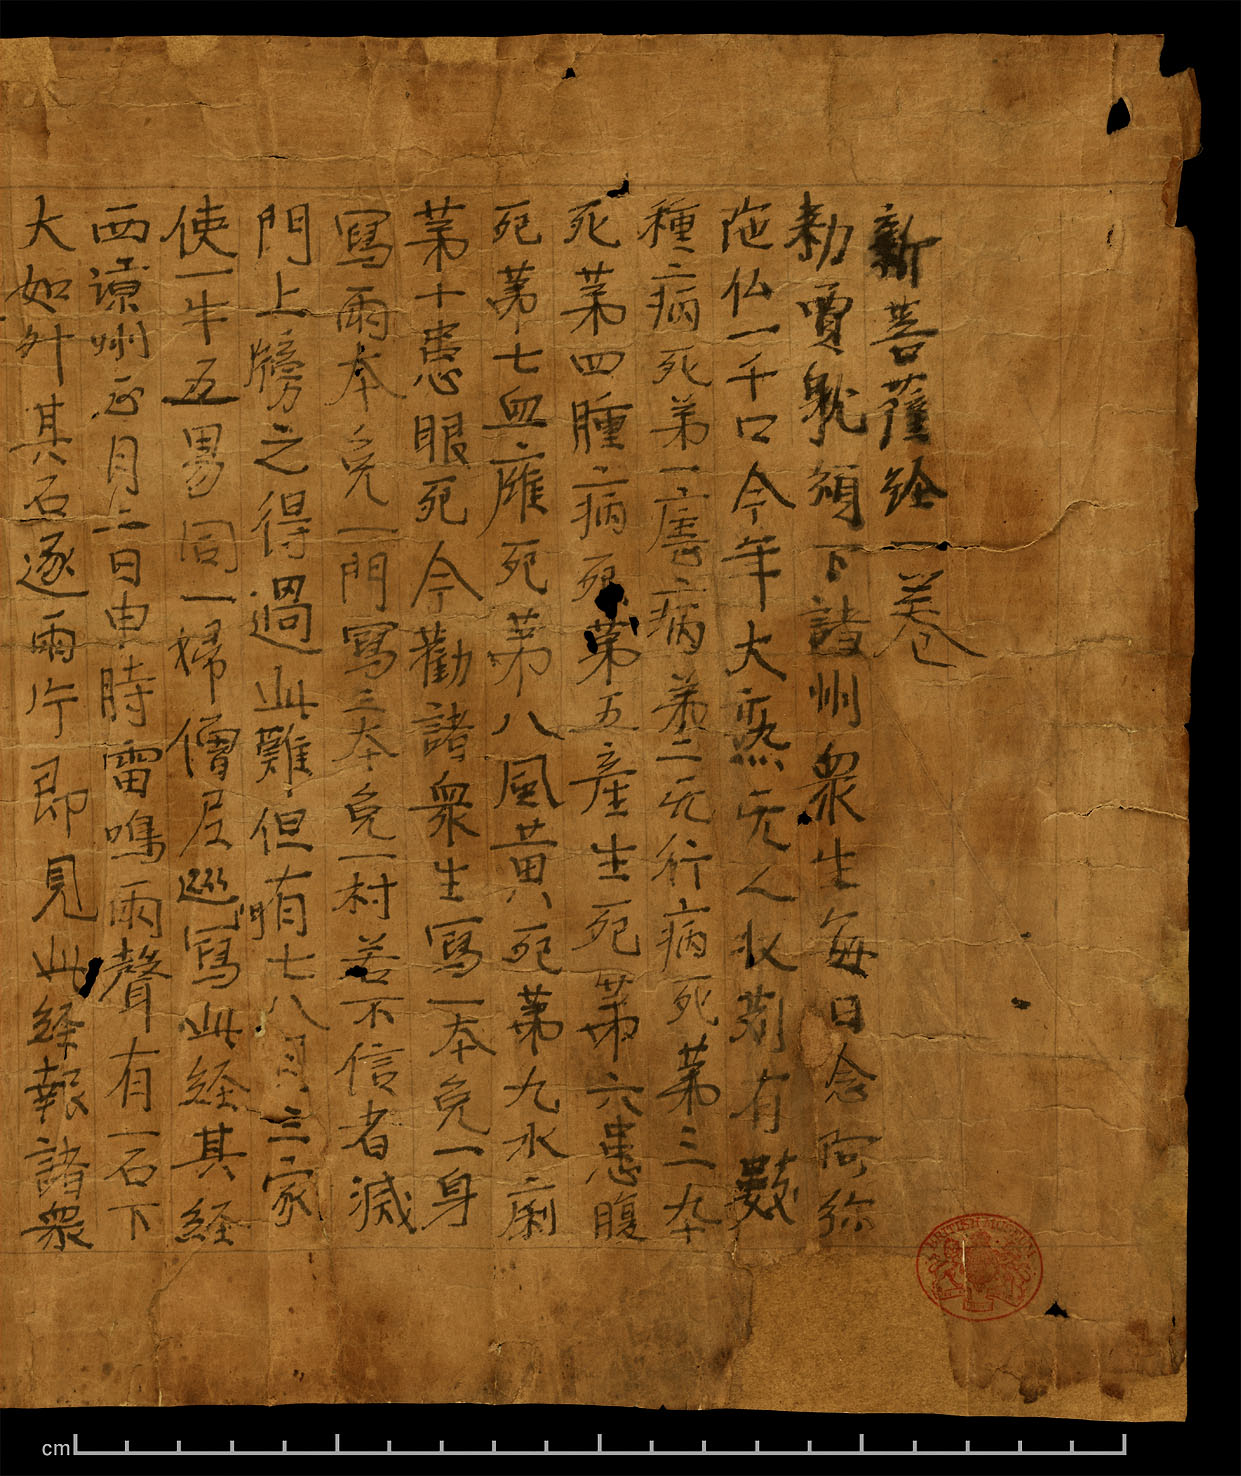 新菩薩経一卷
勑賈躭頒下諸州衆生每日念阿弥
陁仏一千口今年大熟无人收刈有數
種病死弟一瘧病弟二天行病死苐三卒
死苐四腫病死苐五産生死苐六患腹
死苐七血癰死苐八風黄死苐九水痢
苐十患眼死今勸諸衆生寫一本免一身
寫兩本免一門寫三本免一村若不信者滅
門門上牓之得過此難但有七八月三家
使一牛五男同一婦僧尼巡寫此経其経
西涼州正月二日申時雷鳴雨聲有一石下
大如斗其石遂兩片即見此経報諸衆
BRITISH MUSEUM
cm